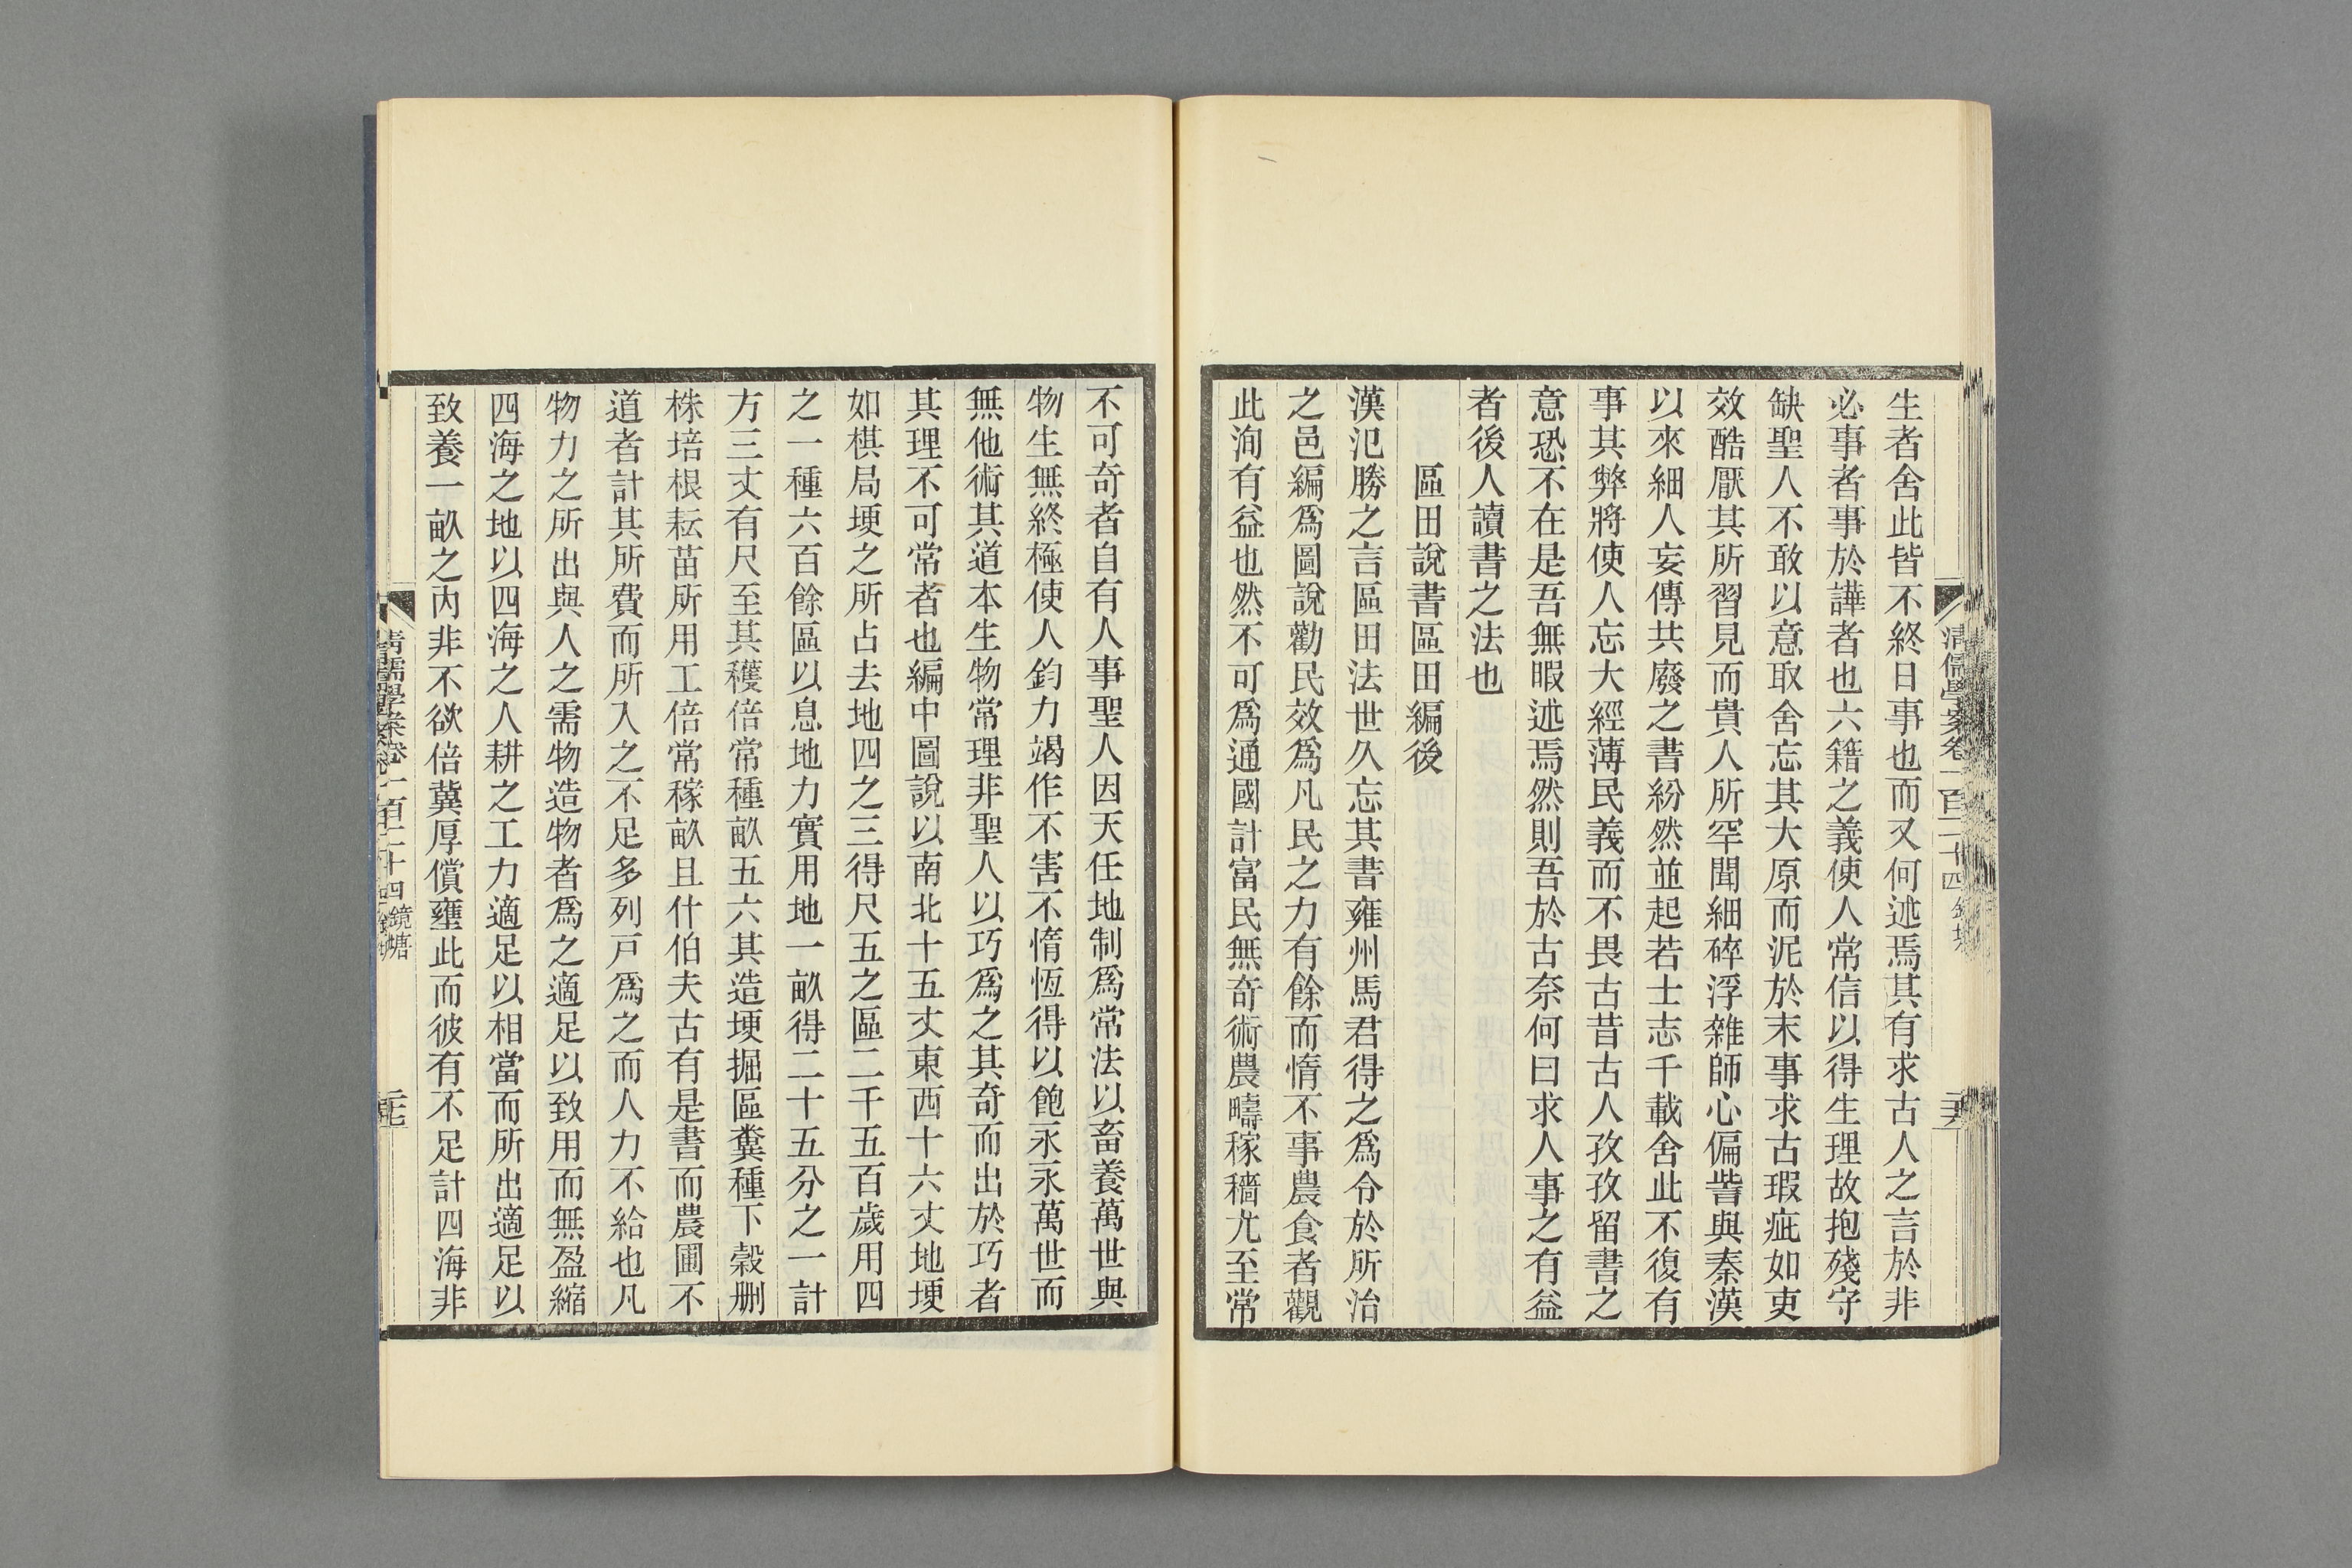 生者舍此皆不終日事也而又何述焉其有求古人之言於非
必事者事於譁者也六籍之義使人常信以得生理故抱殘守
缺聖人不敢以意取舍忘其大原而泥於末事求古瑕疵如吏
效酷厭其所習見而貴人所罕聞細碎浮雜師心偏訾與秦漢
以來細人妄傳共廢之書紛然並起若士志千載舍此不復有
事其弊將使人忘大經薄民義而不畏古昔古人孜孜留書之
意恐不在是吾無暇述焉然則吾於古奈何曰求人事之有益
者後人讀書之法也
區田說書區田編後
漢氾勝之言區田法世久忘其書雍州馬君得之為令於所治
之邑編為圖說勸民效為凡民之力有餘而惰不事農食者觀
此洵有益也然不可為通國計富民無奇術農疇稼穡尤至常
清儒學案卷一百二十四
不可奇者自有人事聖人因天任地制為常法以畜養萬世與
物生無終極使人鈞力竭作不害不惰恆得以飽永永萬世而
無他術其道本生物常理非聖人以巧為之其奇而出於巧者
其理不可常者也編中圖說以南北十五丈東西十六丈地埂
如棋局埂之所占去地四之三得尺五之區二千五百歲用四
之一種六百餘區以息地力實用地一畝得二十五分之一計
方三丈有尺至其穫倍常種畝五六其造埂掘區糞種下穀刪
株培根耘苗所用工倍常稼畝且什伯夫古有是書而農圃不
道者計其所費而所入之不足多列戸為之而人力不給也凡
物力之所出與人之需物造物者為之適足以致用而無盈縮
四海之地以四海之人耕之工力適足以相當而所出適足以
致養一畝之內非不欲倍冀厚償壅此而彼有不足計四海非
清儒學案卷一百二十四 鏡塘